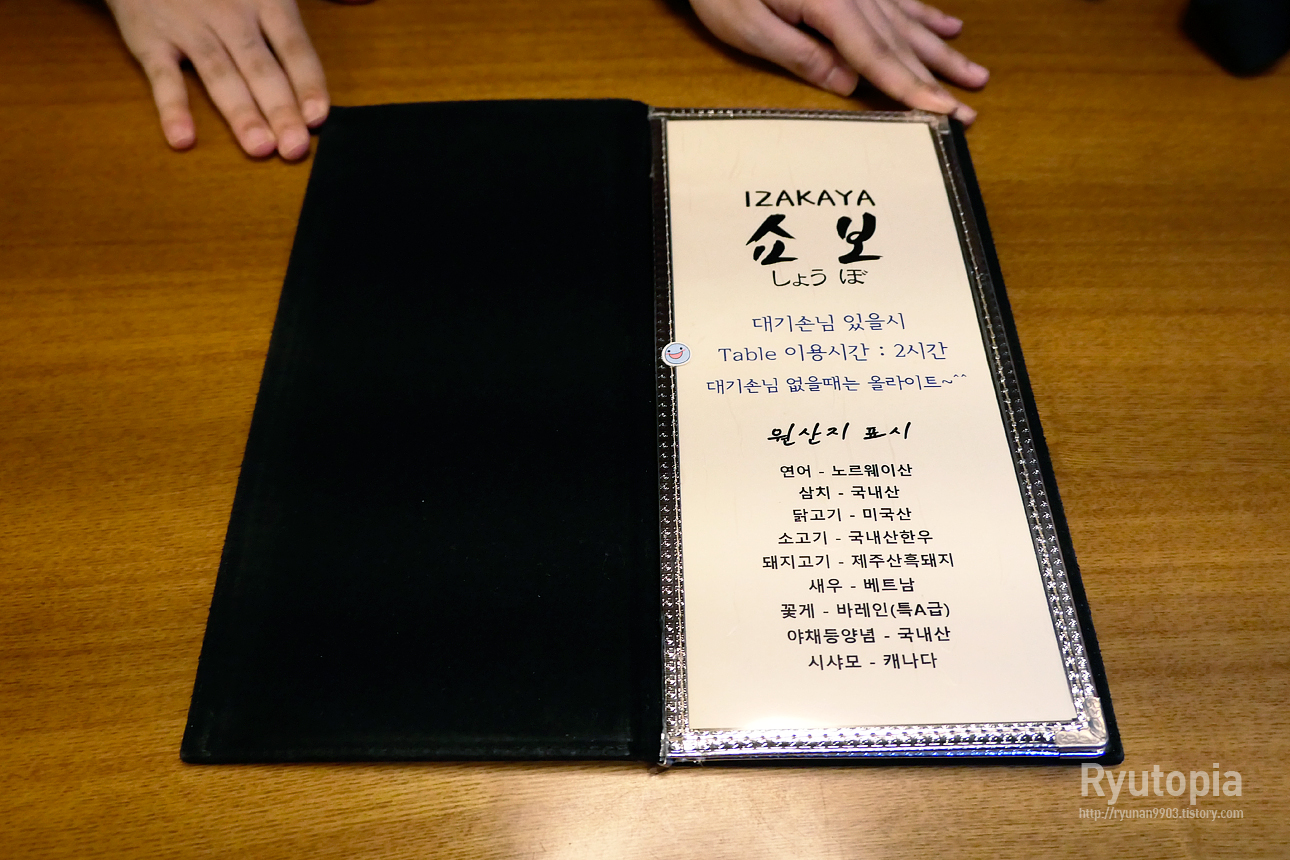 IZAKAYA
쇼 보
しょう ぼ
대기손님 있을시
Table 이용시간 : 2시간
대기손님 없을때는 올라이트~^^
원산지 표시
연어 - 노르웨이산
삼치 - 국내산
닭고기 - 미국산
소고기 - 국내산한우
돼지고기 - 제주산흑돼지
새우 - 베트남
꽃게 - 바레인(특A급)
야채등양념 - 국내산
시샤모 - 캐나다
Ryutopia
http://ryunan9903.tistory.com